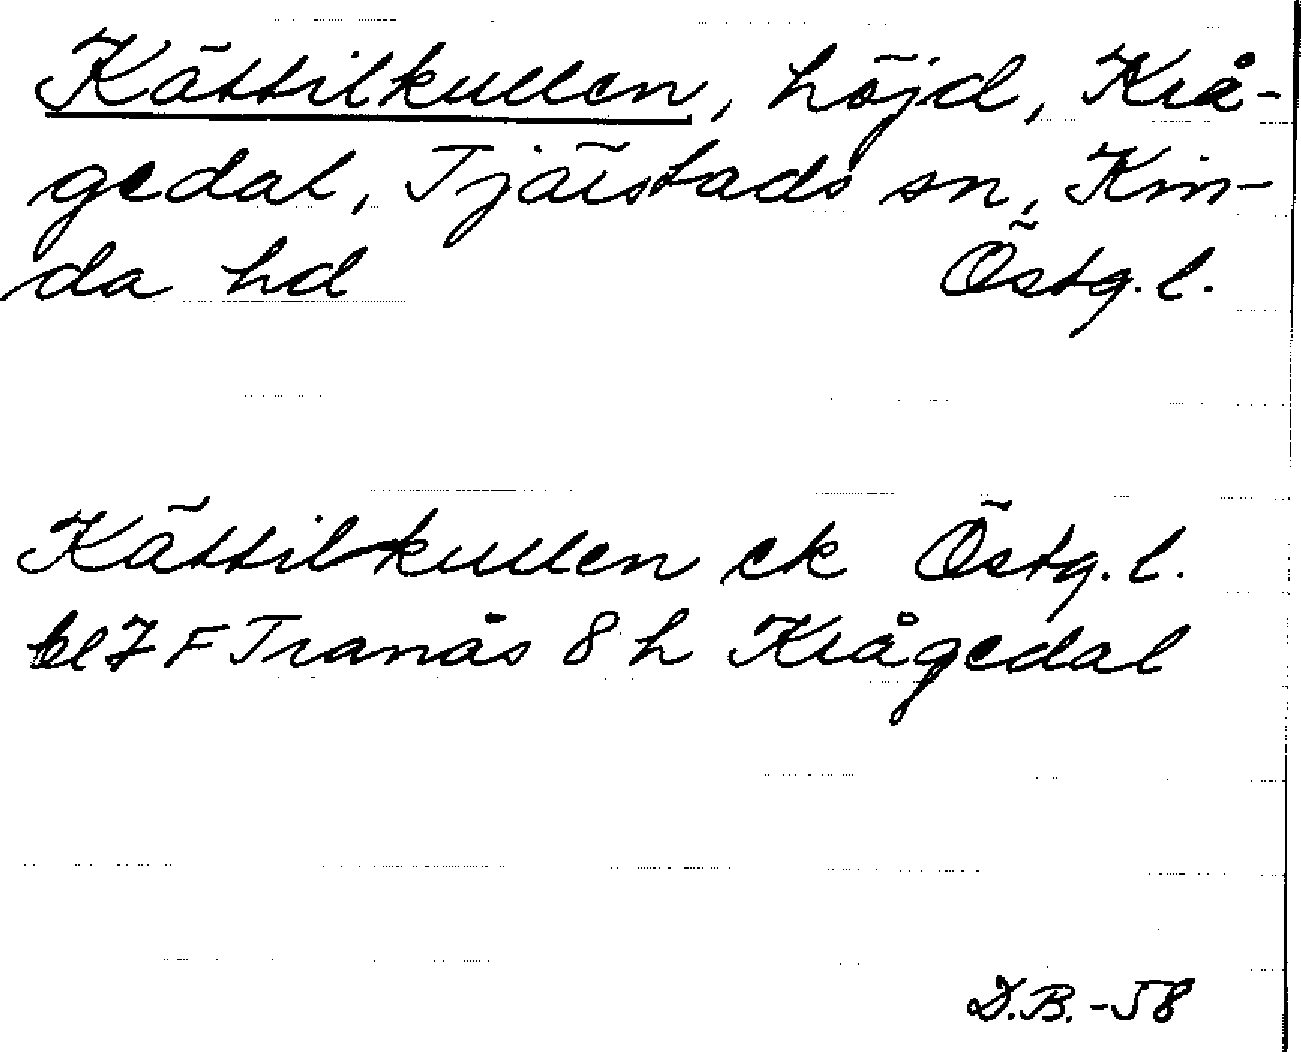 Kättilkullen, höjd, Krå-
gedal, Tjärstads sn, Kin-
da hd Östg.l.
Kättilkullen ek Östg.l.
bl 7 F Tranås 8 h Krågedal
D.B. -58